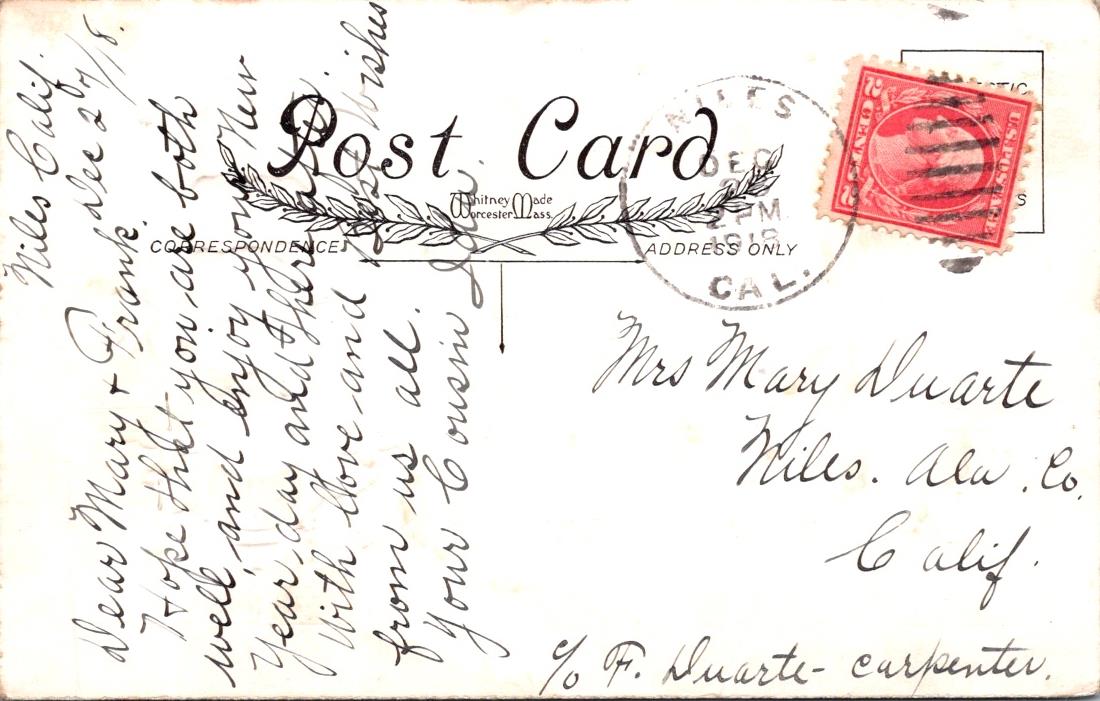 Niles Calif.
Dec 27/18.
Dear Mary + Frank.
Hope that you are both
well, and enjoy your New
Year day and there
With love and Best Wishes
from us all.
Your Cousin Ida
Post Card
Whitney Made
Worcester Mass.
CORRESPONDENCE
ADDRESS ONLY
NILES
DEC
2 PM
1918
CAL.
2 CENTS 2
U.S. POSTAGE
Mrs Mary Duarte
Niles. Ala. Co.
Calif.
c/o F. Duarte - carpenter.